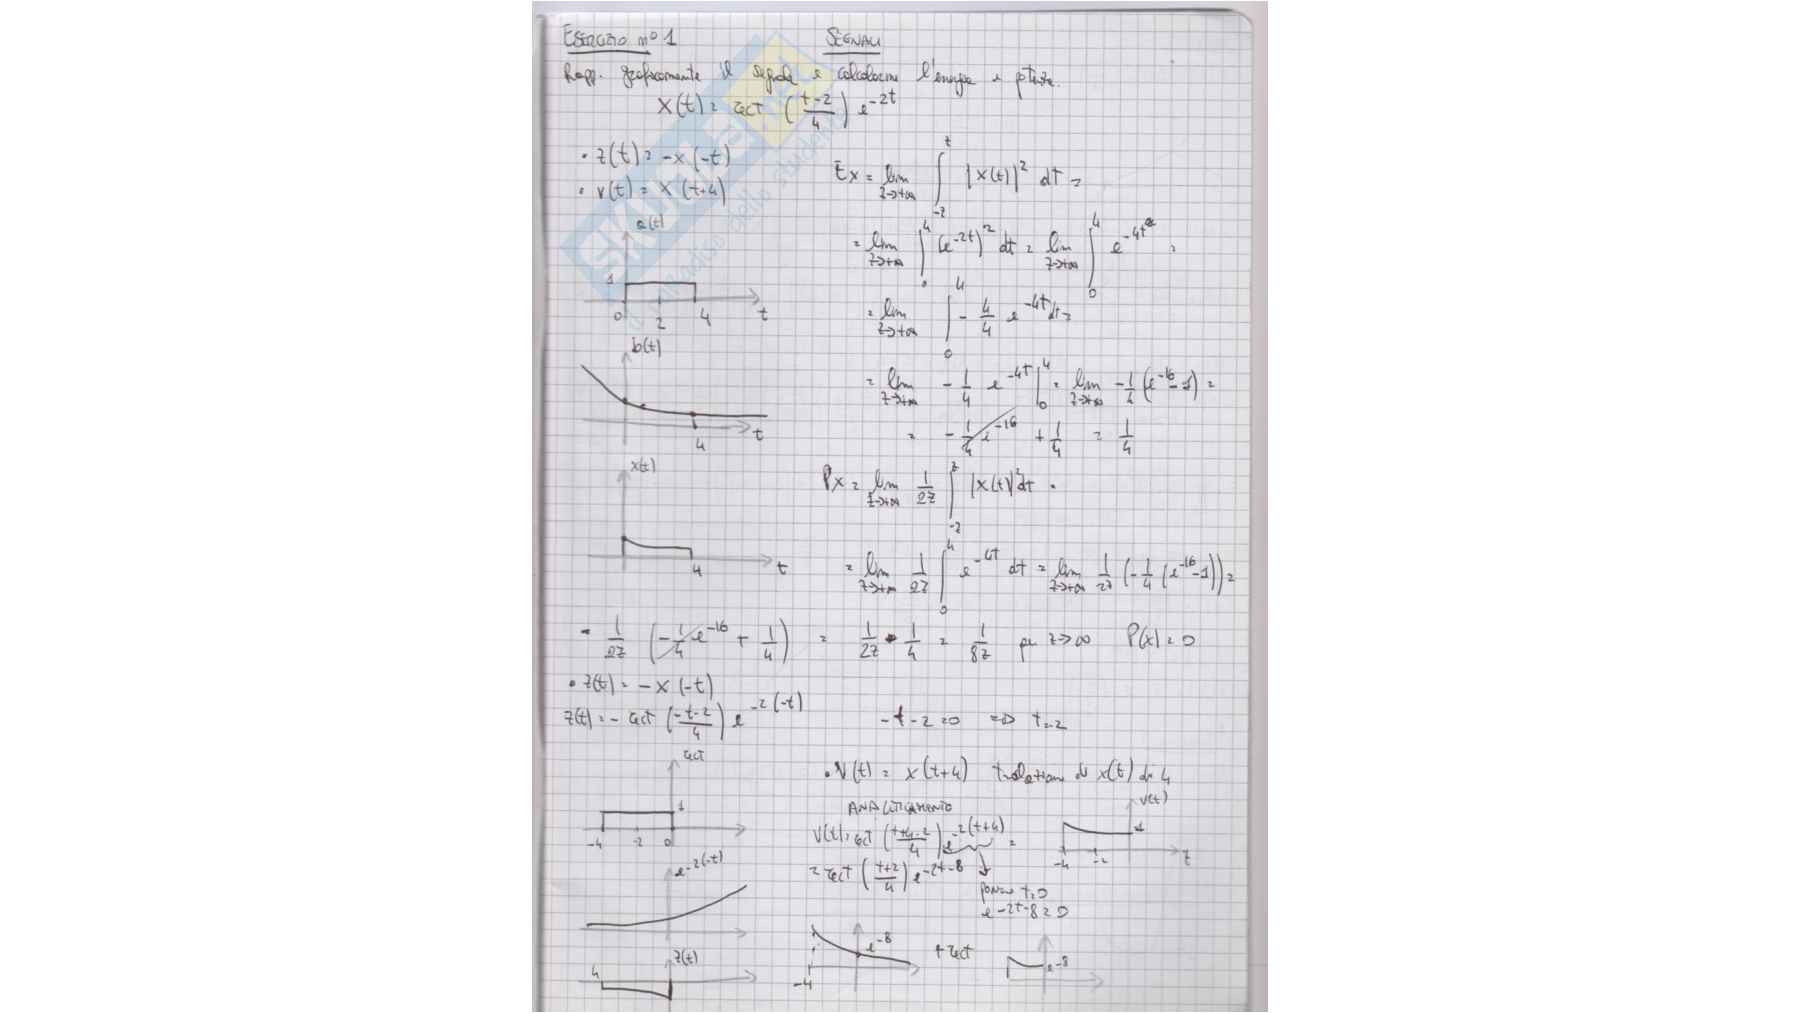 ESERCIZIO nº 1 SEGNALI
Rapp. graficamente il segnale e calcolarne l'energia e potenza.
x(t) = rect ((t-2)/4) e^{-2t}
• z(t) = -x(-t)
• v(t) = x(t+4)
Ex = lim_{z→+∞} ∫_{-z}^{z} |x(t)|^2 dt =
= lim_{z→+∞} ∫_0^4 (e^{-2t})^2 dt = lim_{z→+∞} ∫_0^4 e^{-4t} =
= lim_{z→+∞} ∫_0^4 - 4/4 e^{-4t} dt =
= lim_{z→+∞} - 1/4 e^{-4t} |_0^4 = lim_{z→+∞} -1/4 (e^{-16} - 1) =
= - 1/4 e^{-16} + 1/4 = 1/4
a(t)
1
0 2 4 t
b(t)
4 t
x(t)
4 t
Px = lim_{z→+∞} 1/2z ∫_{-z}^{z} |x(t)|^2 dt =
= lim_{z→+∞} 1/2z ∫_0^4 e^{-4t} dt = lim_{z→+∞} 1/2z (-1/4 (e^{-16} -1)) =
= 1/2z (-1/4 e^{-16} + 1/4) = 1/2z • 1/4 = 1/8z per z→∞ P(x) = 0
• z(t) = -x(-t)
z(t) = - rect ((-t-2)/4) e^{-2(-t)} -t-2=0 => t=-2
rect
1
-4 -2 0
e^{-2(-t)}
z(t)
4
• v(t) = x(t+4) traslazione di x(t) di 4
ANALITICAMENTE
v(t) = rect ((t+4-2)/4) e^{-2(t+4)} =
= rect ((t+2)/4) e^{-2t-8}
poniamo t=0
e^{-2t-8}=0
v(t)
-4 -2 t
e^{-8}
-4
+ rect
e^{-8}
SKUOLA.net
il paradiso dello studente